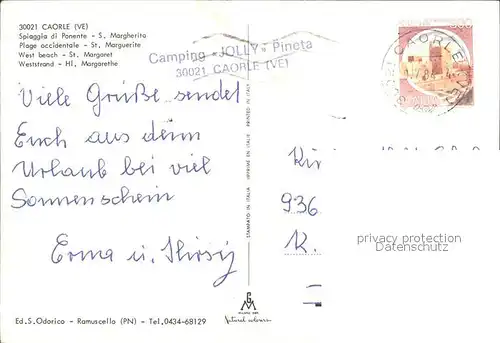 30021 CAORLE (VE)
Spiaggia di Ponente - S. Margherita
Plage occidentale - St. Marguerite
West beach - St. Margaret
Weststrand - Hl. Margarethe
Camping «JOLLY» Pineta
30021 CAORLE (VE)
CAORLE
Viele Grüße sendet
Euch aus dem
Urlaub bei viel
Sonnenschein
Erma u. Hirsig
936
K.
privacy protection
Datenschutz
STAMPATO IN ITALIA IMPRIMÉ EN ITALY PRINTED IN ITALY
Natural colours
Ed. S. Odorico - Ramuscello (PN) - Tel. 0434-68129